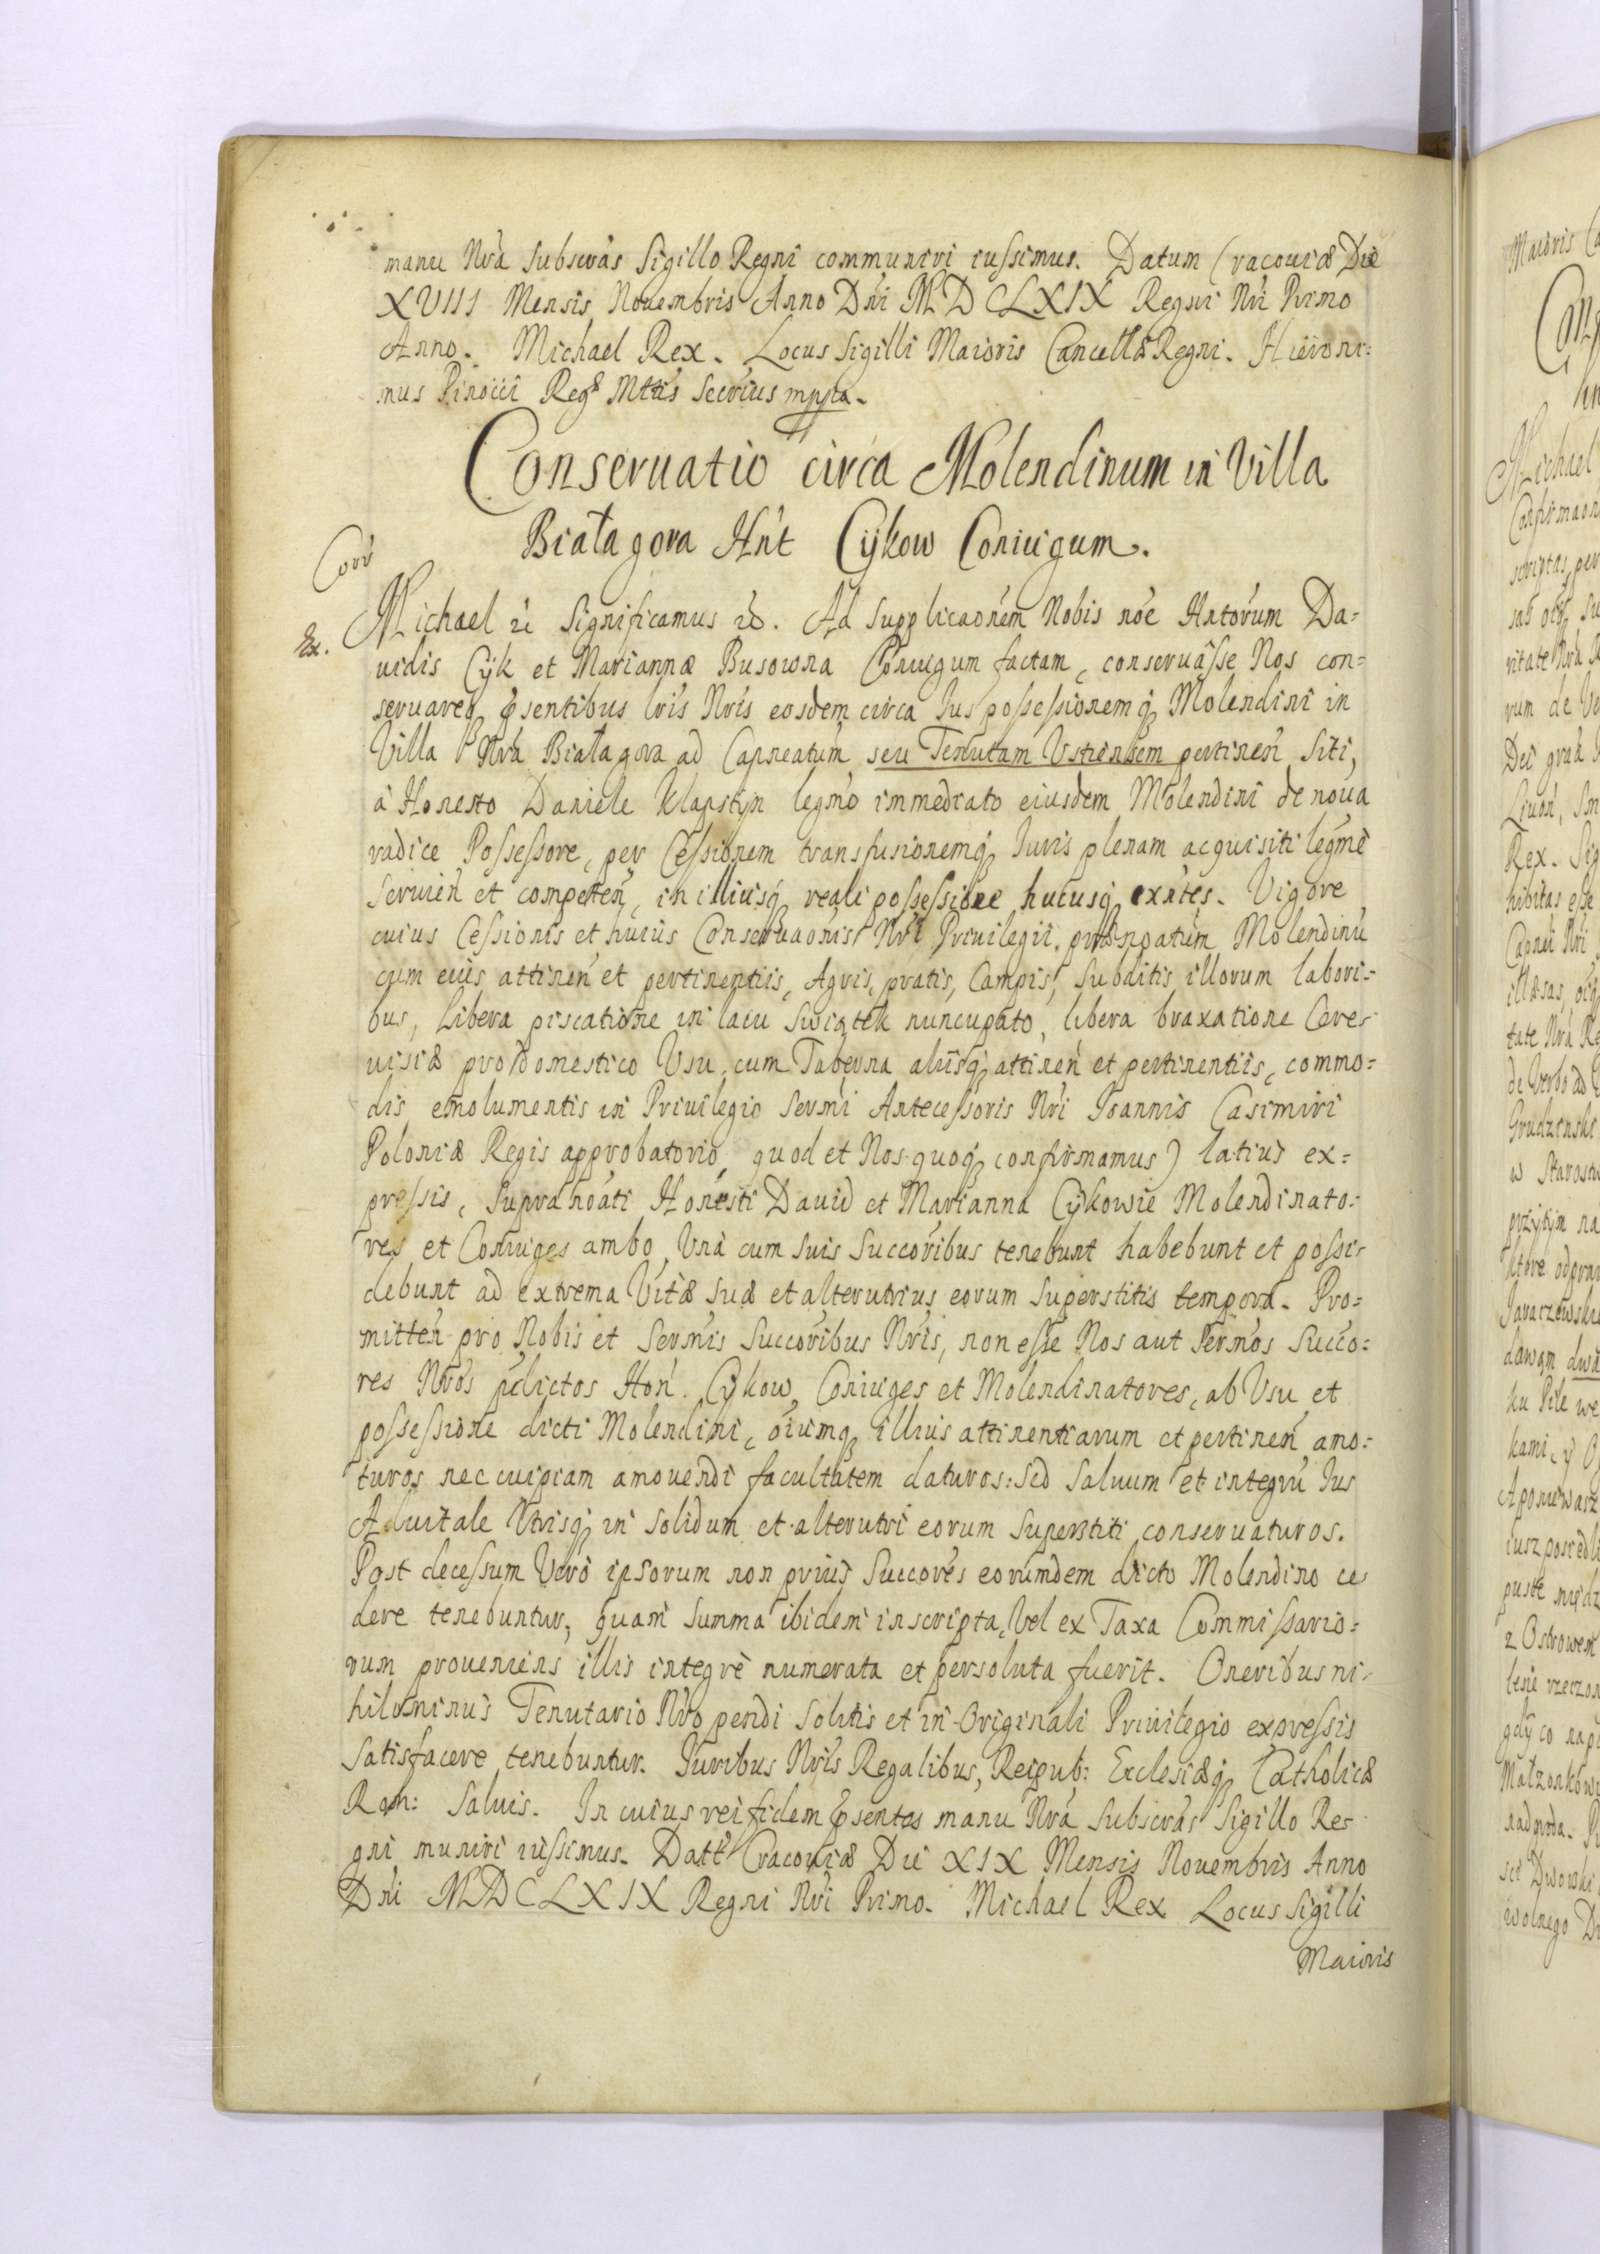 manu Nrá Subscrás Sigillo Regni communivi iussimus. Datum Cracoviæ Die
XVIII Mensis Novembris Anno Dni MDCLXIX Regni Nri Primo
Anno. Michael Rex. Locus Sigilli Maioris Cancellæ Regni. Hieroni=
mus Pinocci Reg Mttis Secrius mppa.
Conservatio circa Molendinum in Villa
Białagora Hnt Cÿkow Coniugum.
Corr
Ex.
Michael &c Significamus &c. Ad supplicaonem Nobis nóe Hntorum Da=
vidis Cÿk et Mariannæ Busowna Coniugum factam, conservâsse Nos con=
servareq pſentibus lris Nris eosdem circa Ius possessionemq Molendini in
Villa Nra Białagora ad Capneatum seu Tenutam Ustiensem pertinen siti,
à Honesto Daniele Klapstÿn legmo immediato eiusdem Molendini de nova
radice Possessore, per Cessionem transfusionemq Iuris plenam acquisiti legme
servien et competen, in illiusq reali possessione hucusq exntes. Vigore
cuius Cessionis et huius Conservaonis Nri Privilegii, prænoatum Molendinu
cum eius attinen et pertinentiis, Agris, pratis, Campis, Subditis, illorum labori=
bus, libera piscatione in lacu Swiątek nuncupato, libera braxatione Cere=
visiæ pro domestico Usu, cum Taberna aliisq attinen et pertinentiis, commo=
dis emolumentis in Privilegio Sermi Antecessoris Nri Joannis Casimiri
Poloniæ Regis approbatorio, quod et Nos quoq confirmamus) latius ex=
pressis, supranoati Honesti David et Marianna Cÿkowie Molendinato=
res et Coniuges ambo Unà cum suis Succoribus tenebunt habebunt et possi=
debunt ad extrema Vitæ suæ et alterutrius eorum superstitis tempora. Pro=
mitten pro Nobis et Sermis Succoribus Nris, non esse Nos aut Sermos Succo=
res Nros pdictos Hon. Cÿkow Coniuges et Molendinatores, ab Usu et
possessione dicti Molendini, oiumq illius attinentiarum et pertinen amo=
turos nec cuipiam amovendi facultatem daturos: sed salvum et integru Ius
Advitale Utrisq in solidum et alterutri eorum superstiti conservaturos.
Post decessum Vero ipsorum non prius Succores eorumdem dicto Molendino ce=
dere tenebuntur, quam summa ibidem inscripta, Vel ex Taxa Commissario=
rum proveniens illis integrè numerata et persoluta fuerit. Oneribus ni=
hilominus Tenutario Nro pendi solitis et in Originali Privilegio expressis
satisfacere tenebuntur. Iuribus Nris Regalibus, Reipub: Ecclesiæq Catholicæ
Rom: salvis. In cuius rei fidem pſentes manu Nrá Subscrás Sigillo Re=
gni muniri iussimus. Datt Cracoviæ Die XIX Mensis Novembris Anno
Dni MDCLXIX Regni Nri Primo. Michael Rex Locus Sigilli
Maioris